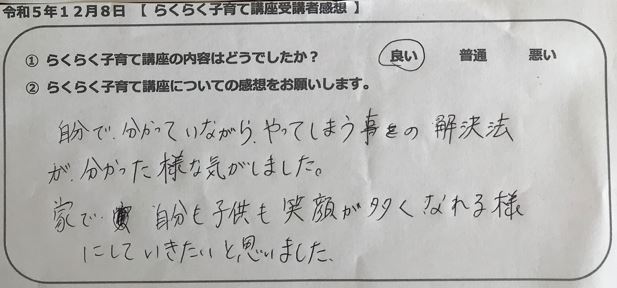 令和5年12月8日 【 らくらく子育て講座受講者感想 】
① らくらく子育て講座の内容はどうでしたか？ 良い 普通 悪い
② らくらく子育て講座についての感想をお願いします。
自分で、分かっていながら、やってしまう事の解決法
が、分かった様な気がしました。
家で 自分も子供も笑顔が多くなれる様
にしていきたいと、思いました。